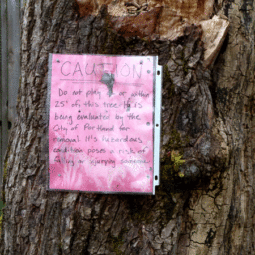 CAUTION
Do not play or within
25' of this tree. It is
being evaluated by the
City of Portland for
removal. It's hazardous
condition poses a risk of
falling or injuring someone.